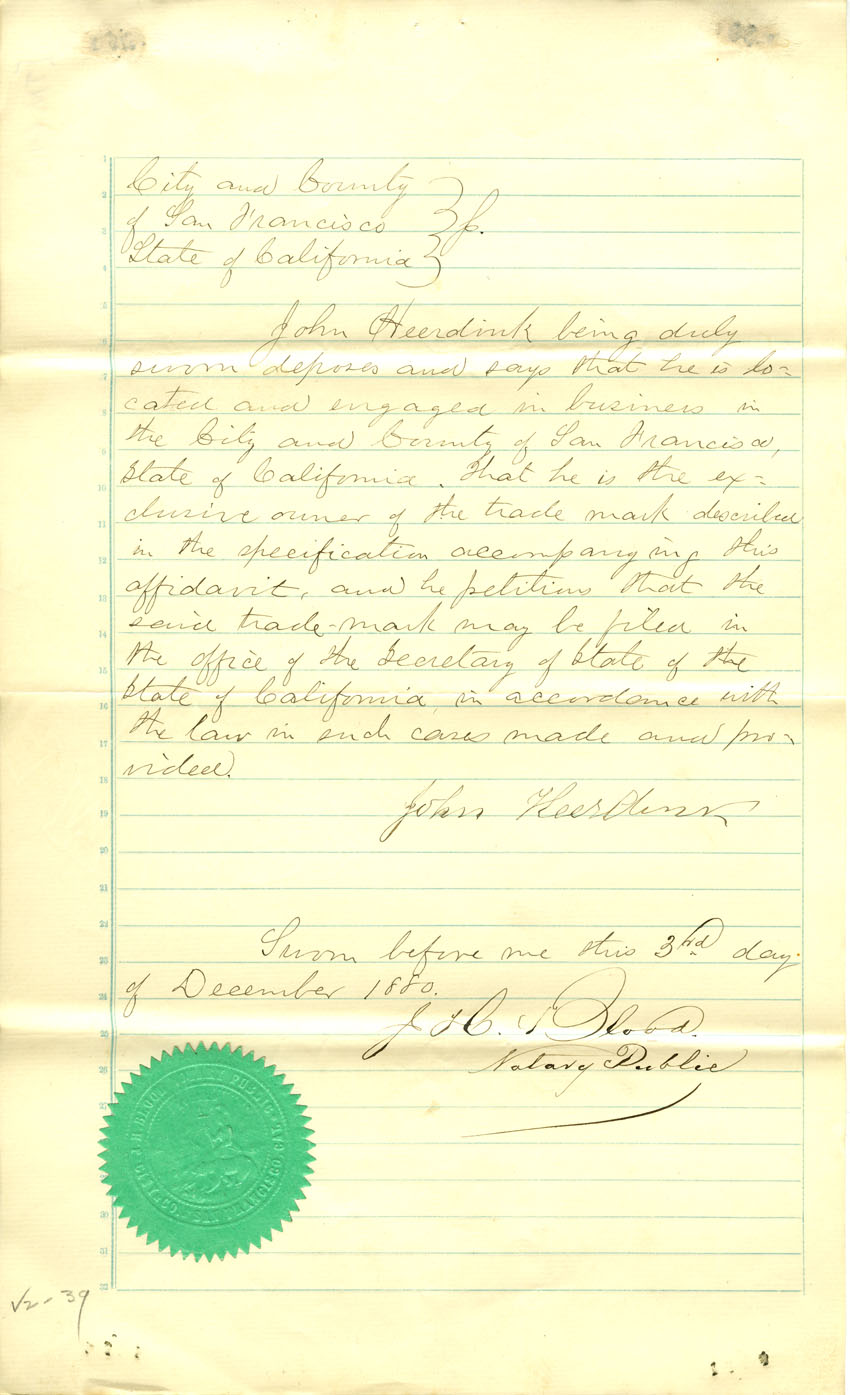 City and County
of San Francisco } ss.
State of California
John Heerdink being duly
sworn deposes and says that he is lo=
cated and engaged in business in
the City and County of San Francisco,
State of California. That he is the ex=
clusive owner of the trade mark described
in the specification accompanying this
affidavit, and he petitions that the
said trade-mark may be filed in
the office of the Secretary of State of the
State of California, in accordance with
the law in such cases made and pro=
vided.
John Heerdink
Sworn before me this 3rd day
of December 1880.
J H. Blood.
Notary Public
J. H. BLOOD NOTARY PUBLIC
CITY & CO. SAN FRANCISCO CAL.
V2-39